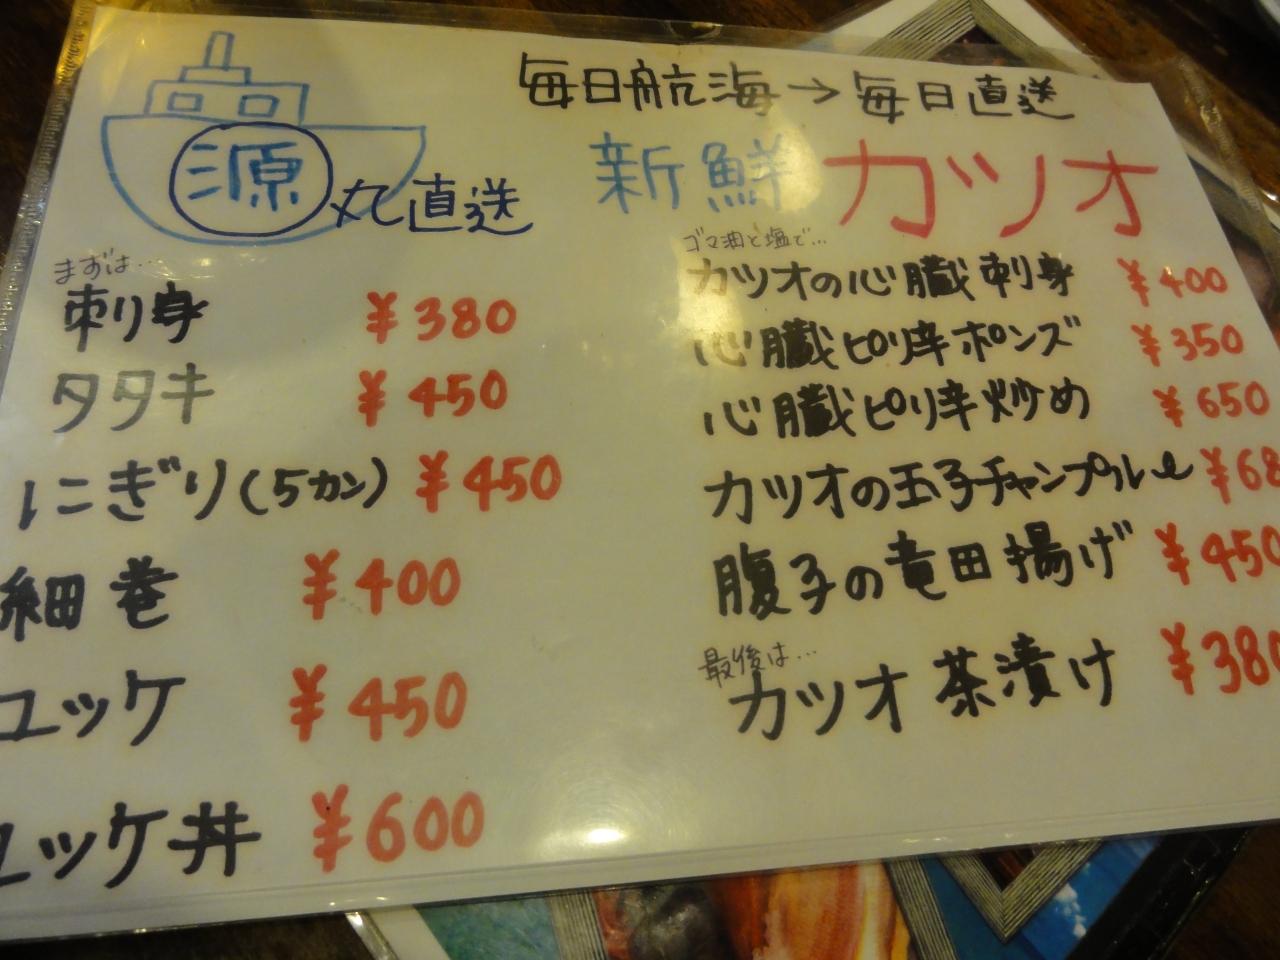 毎日航海→毎日直送
源丸直送
新鮮カツオ
まずは…
刺り身 ¥380
タタキ ¥450
にぎり(5カン) ¥450
細巻 ¥400
ユッケ ¥450
ユッケ丼 ¥600
ゴマ油と塩で…
カツオの心臓刺身 ¥400
心臓ピリ辛ポンズ ¥350
心臓ピリ辛炒め ¥650
カツオの玉子チャンプルー ¥68
腹子の竜田揚げ ¥450
最後は…
カツオ茶漬け ¥380